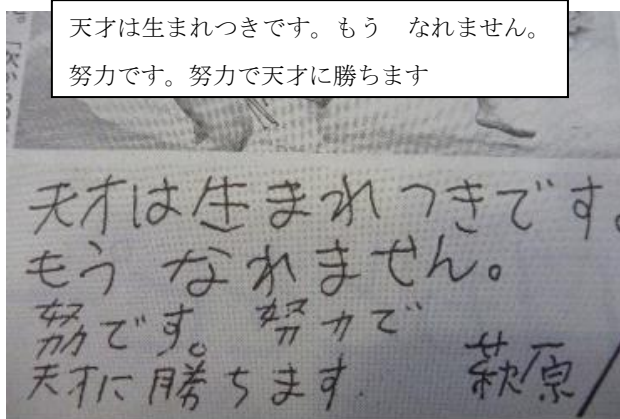 天才は生まれつきです。もう　なれません。
努力です。努力で天才に勝ちます
天才は生まれつきです。
もう なれません。
努力です。努力で
天才に勝ちます. 萩原